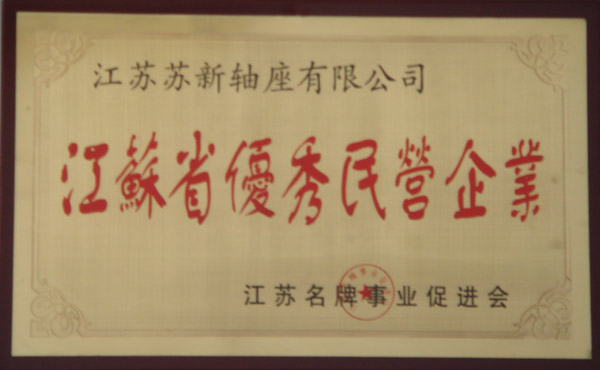 江苏苏新轴座有限公司
江蘇省優秀民營企業
江苏名牌事业促进会